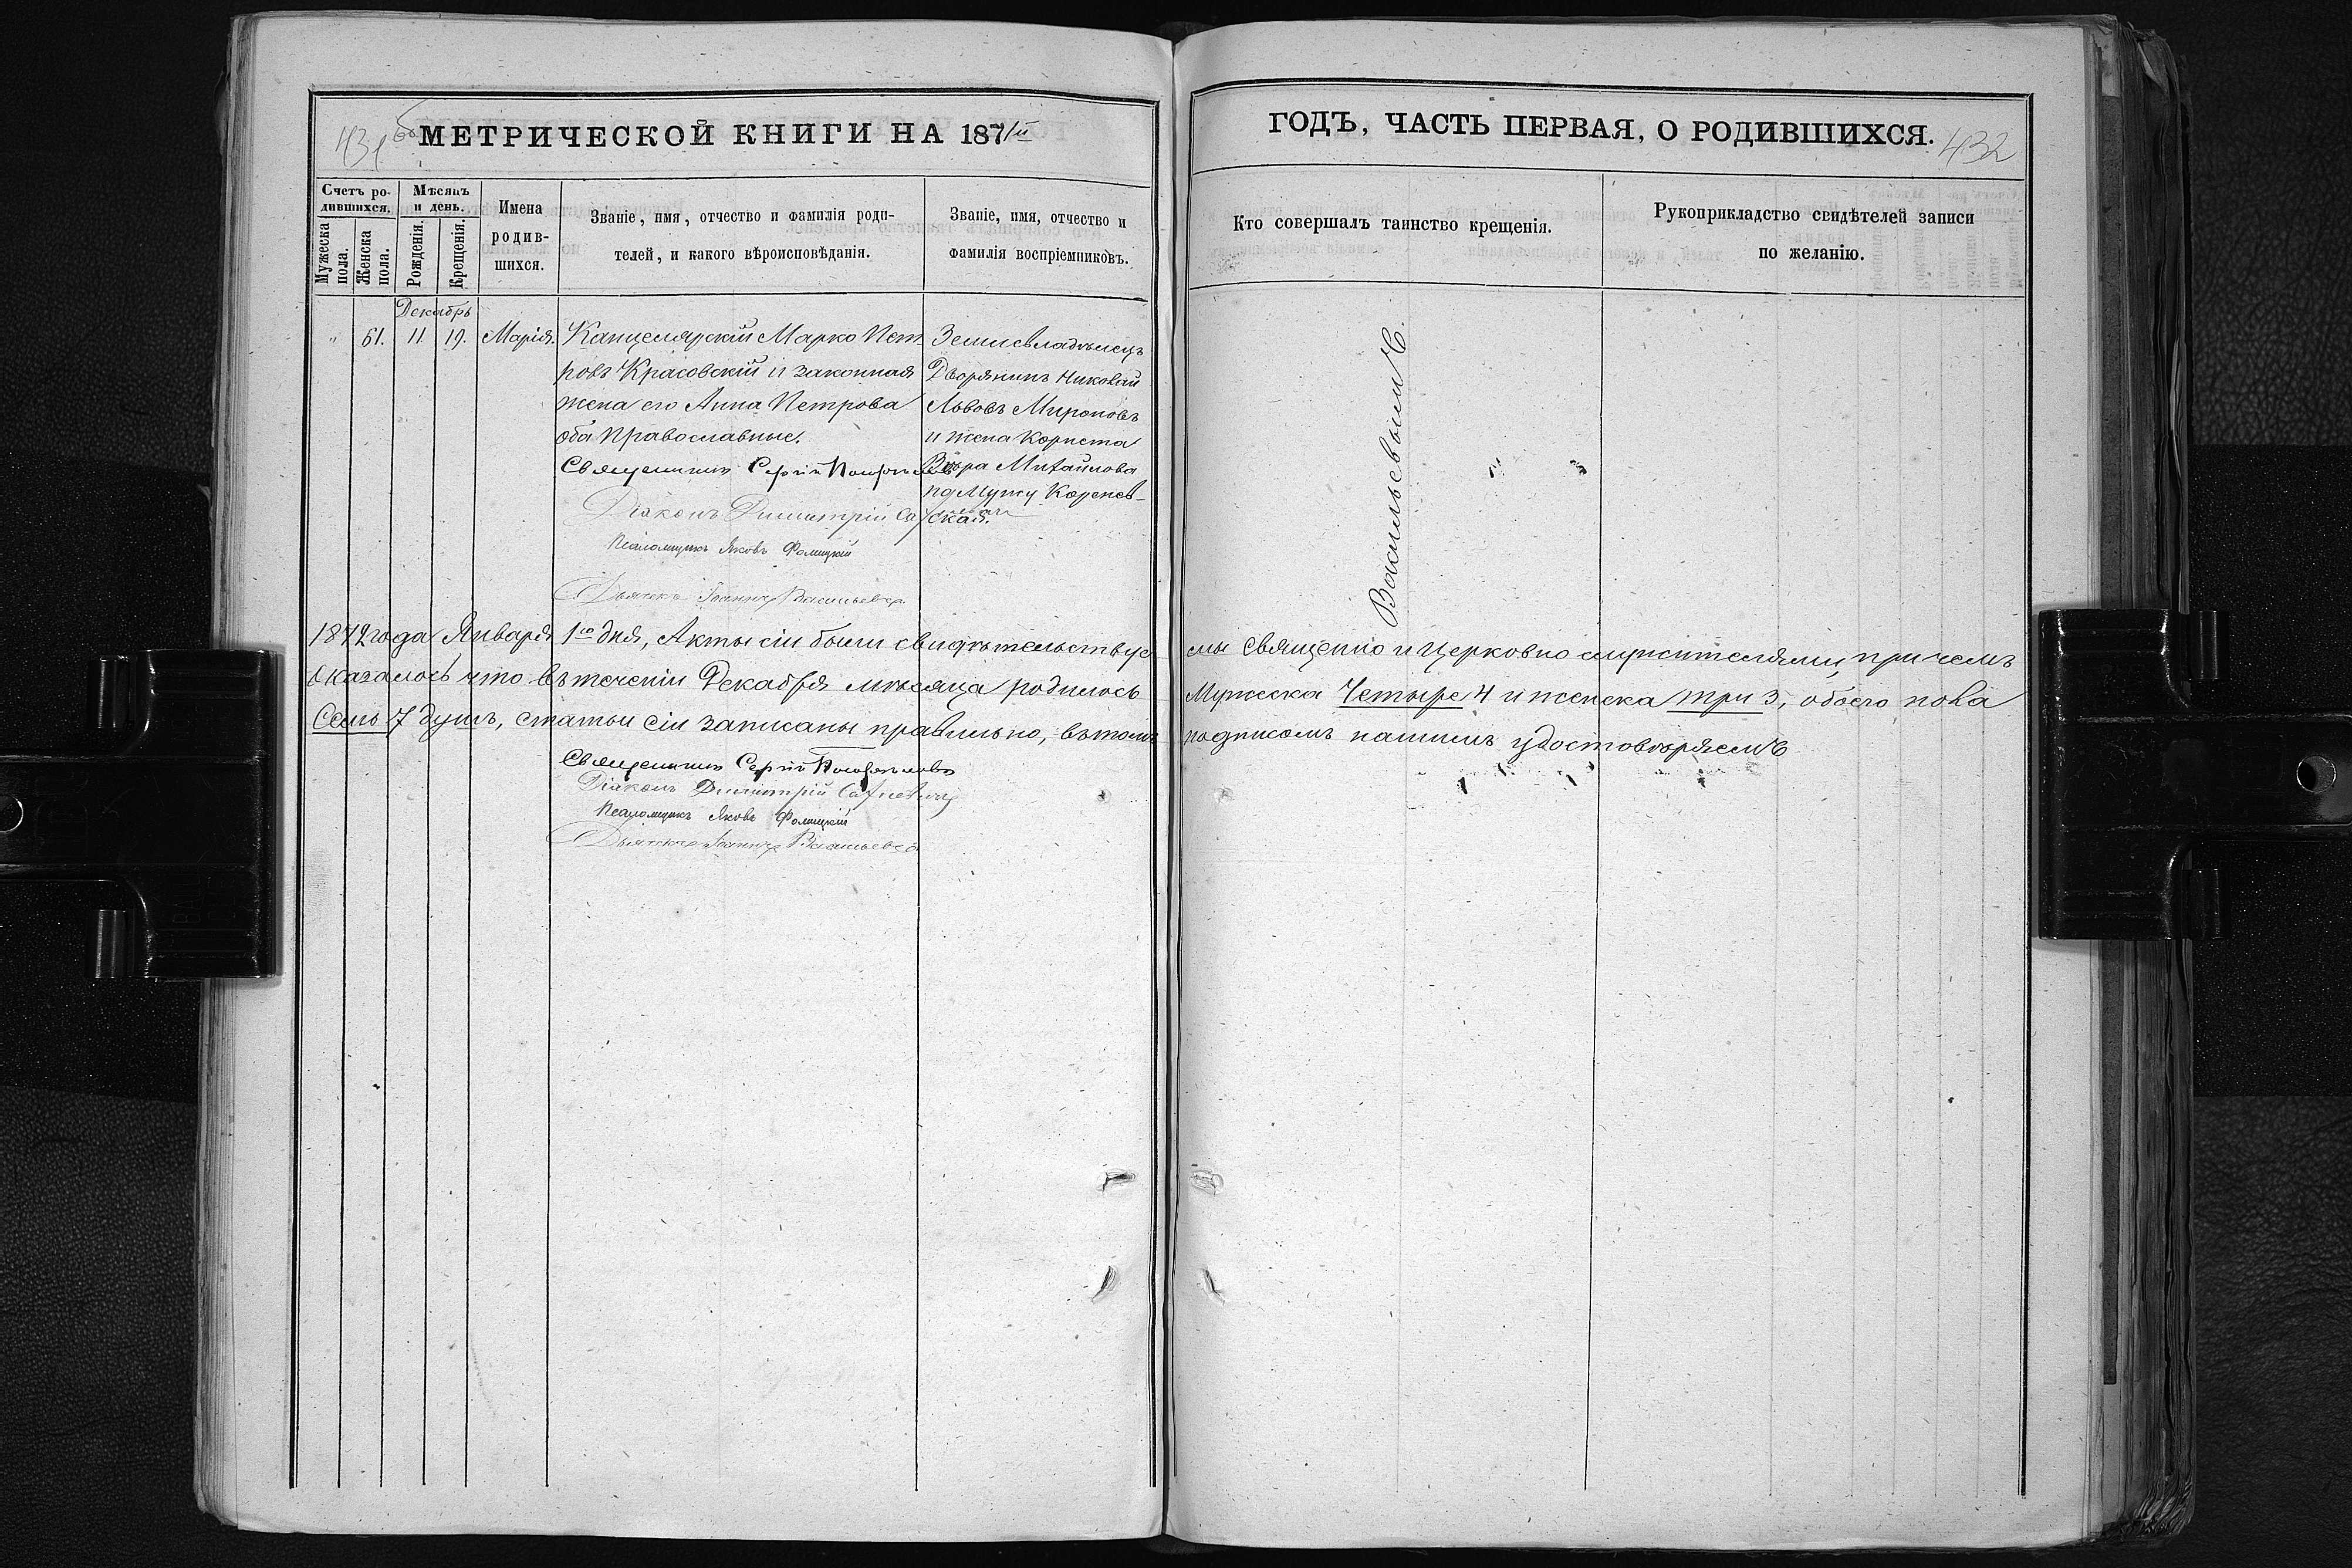 431 об
МЕТРИЧЕСКОЙ КНИГИ НА 1871й
Счетъ ро-
дившихся.
Мужеска
пола.
Женска
пола.
Мѣсяцъ
и день.
Рожденія.
Крещенія.
Имена
родив-
шихся.
Званіе, имя, отчество и фамилія роди-
телей, и какого вѣроисповѣданія.
Званіе, имя, отчество и
фамилія воспріемниковъ.
Декабрь
" 61. 11 19. Марія.
Канцелярскій Марко Пет-
ровъ Красовскій и законная
жена его Анна Петрова
оба православные.
Священникъ Сергій
Діаконъ Димитрій
Псаломщикъ Яковъ Фомицкій
Дьячекъ Іоаннъ Васильевъ
Землевладѣлецъ
Дворянинъ Николай
Львовъ Мироновъ
и жена Корнета
Вѣра Михайлова
по мужу Коренев-
ская.
1872 года Января 1го дня, Акты сіи были свидѣтельствуе
оказалось что въ теченіи Декабря мѣсяца родилось
Семь 7 душъ, статьи сіи записаны правильно, въ томъ
Священникъ Сергій
Діаконъ Димитрій
Псаломщикъ Яковъ Фомицкій
Дьячекъ Іоаннъ Васильевъ
ГОДЪ, ЧАСТЬ ПЕРВАЯ, О РОДИВШИХСЯ.
432
Кто совершалъ таинство крещенія.
Рукоприкладство свидѣтелей записи
по желанію.
Васильевымъ.
мы Священно и Церковно служителями, при чемъ
Мужеска Четыре 4 и женска три 3, обоего пола
подписомъ нашимъ удостовѣряемъ